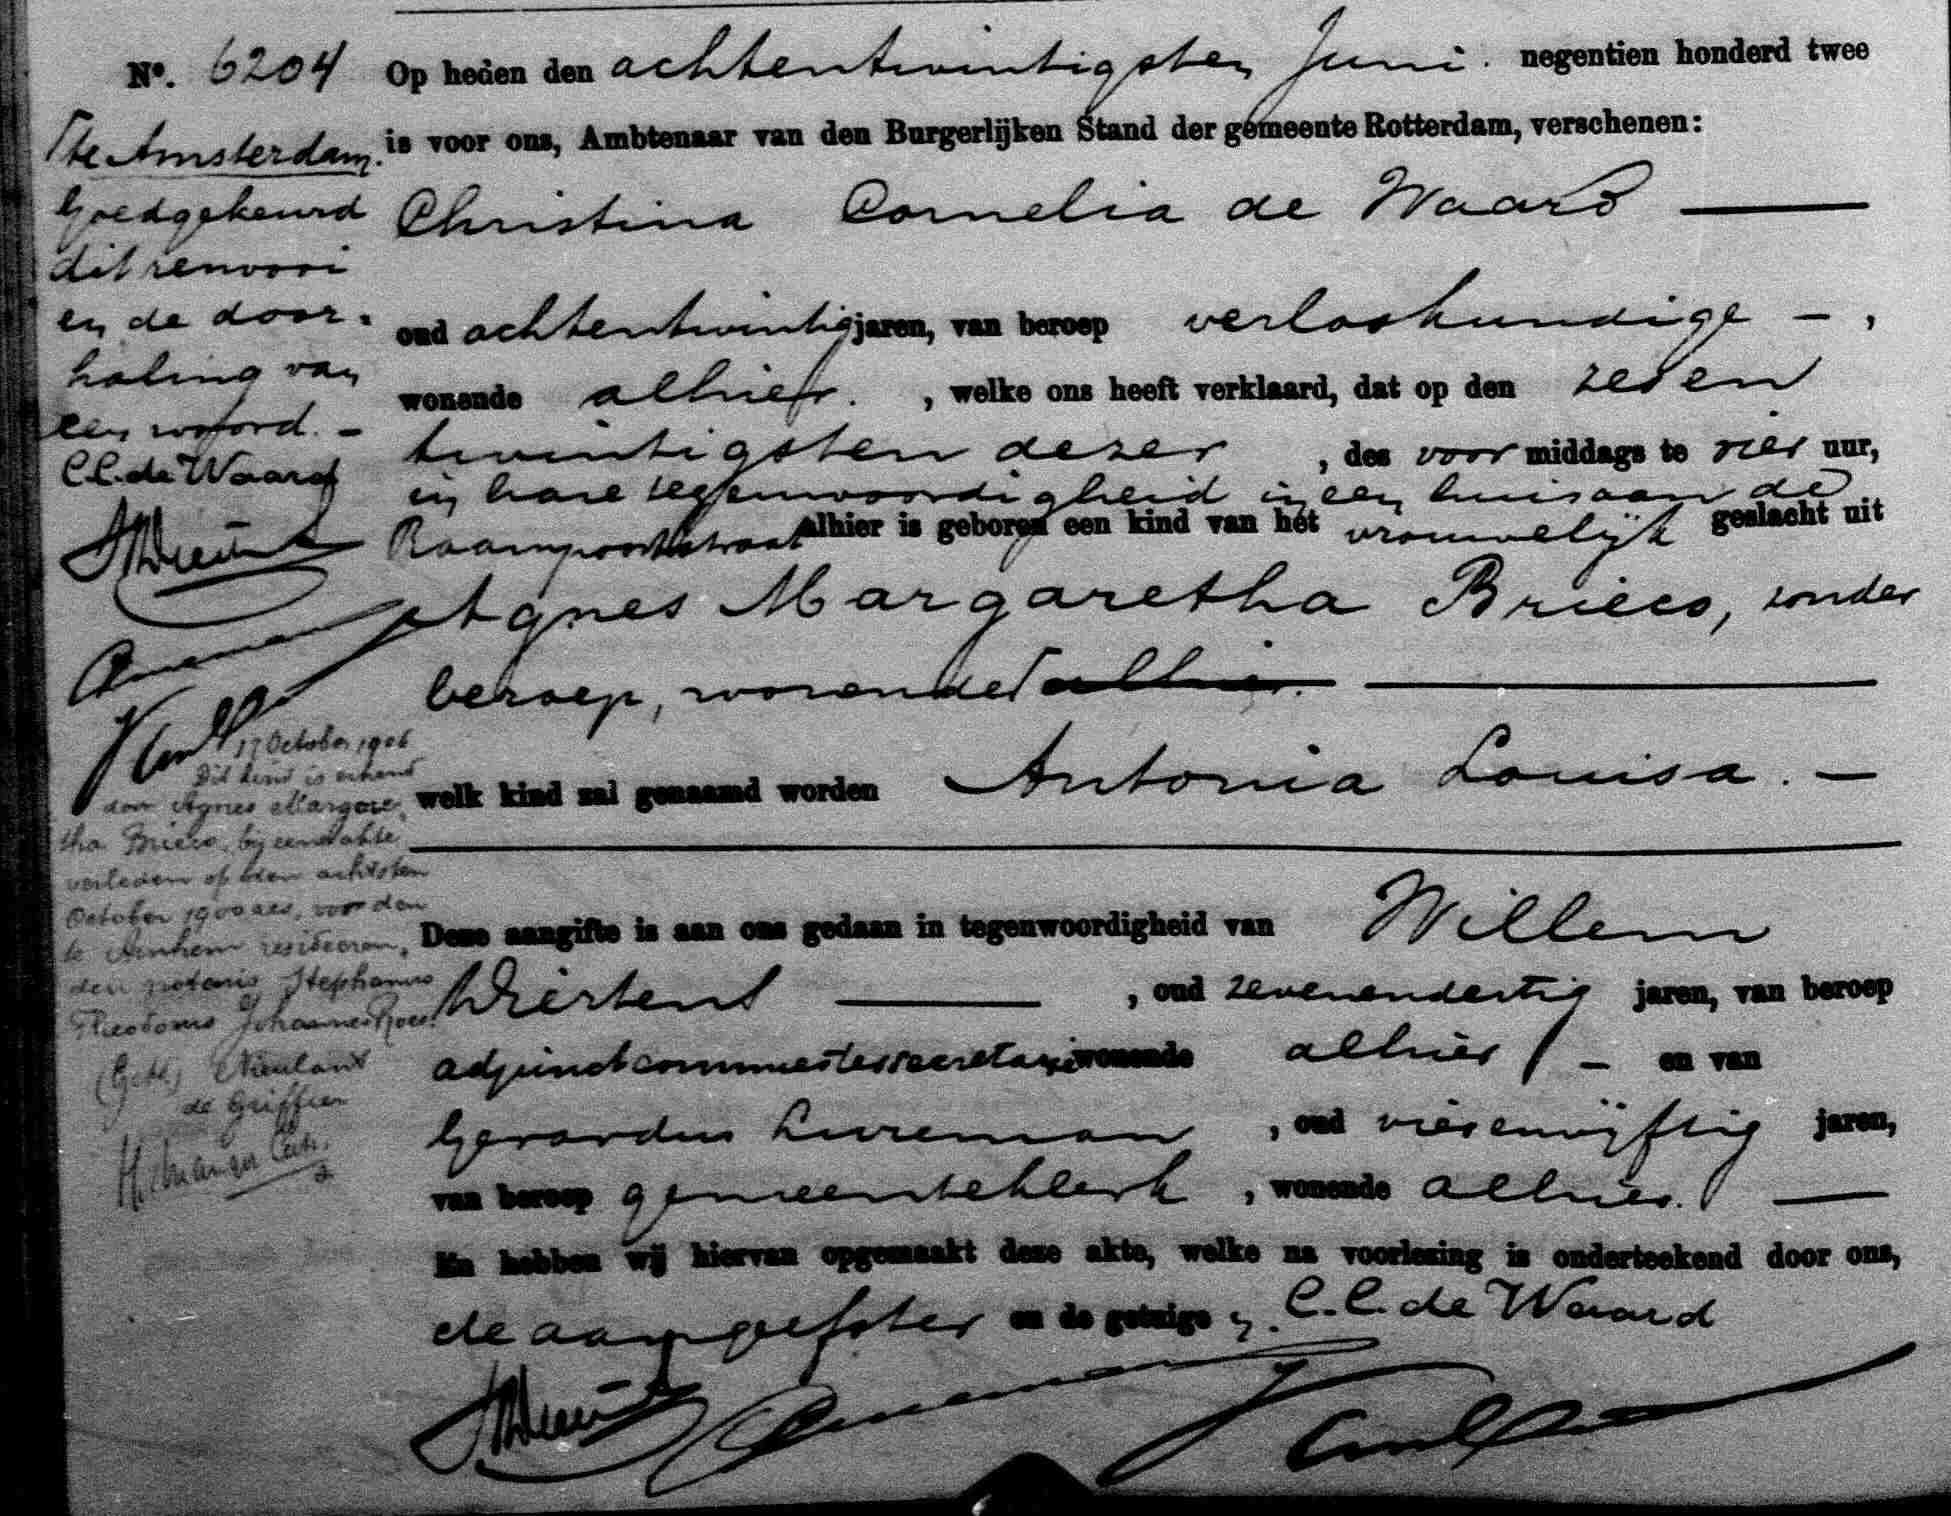 No. 6204 Op heden den achtentwintigsten Juni. negentien honderd twee
is voor ons, Ambtenaar van den Burgerlijken Stand der gemeente Rotterdam, verschenen:
Christina Cornelia de Waard
oud achtentwintig jaren, van beroep verloskundige - ,
wonende alhier. , welke ons heeft verklaard, dat op den zeven
twintigsten dezer , des voor middags te vier uur,
in hare tegenwoordigheid in een huis aan de
Raampoortstraat alhier is geboren een kind van het vrouwelijk geslacht uit
Agnes Margaretha Brieco, zonder
beroep, wonende ⌈ alhier.
welk kind zal genaamd worden Antonia Louisa. -
Deze aangifte is aan ons gedaan in tegenwoordigheid van Willem
, oud zevenendertig jaren, van beroep
adjunctcommiesterssecretarie wonende alhier - en van
Gerardus Lureman , oud vierenvijftig jaren,
van beroep gemeenteklerk , wonende alhier.
En hebben wij hiervan opgemaakt deze akte, welke na voorlezing is onderteekend door ons,
de aangeefster en de getuige n. C.C. de Waard
⌈ te Amsterdam.
Goedgekeurd
dit renvooi
en de door=
haling van
een woord. -
C.C. de Waard
17 October 1906
Dit kind is erkend
door Agnes Margare=
tha Brieco, bij eene akte
verleden op den achtsten
October 1900zes, voor den
te Arnhem resideeren=
den notaris Stephanus
Theodorus Johannes
(Get.) Nieuland
de Griffier